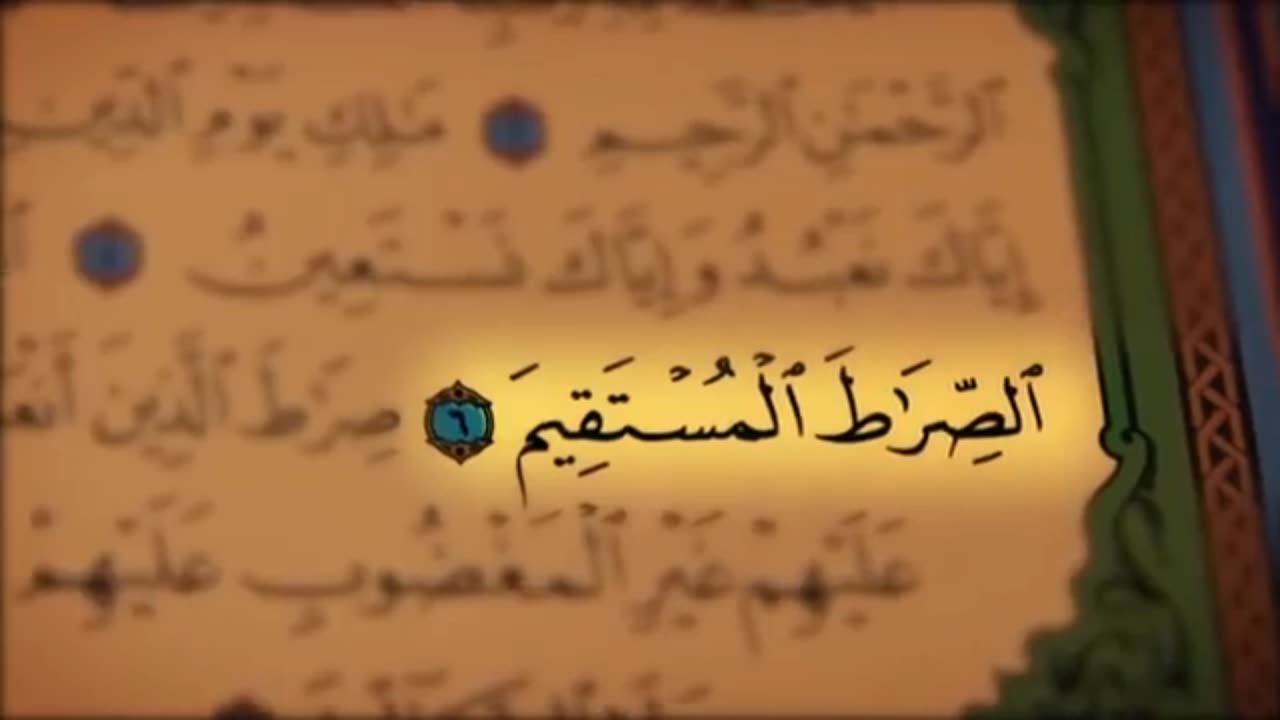 ٱلرَّحْمَٰنِ ٱلرَّحِيمِ مَٰلِكِ يَوْمِ ٱلدِّينِ
إِيَّاكَ نَعْبُدُ وَإِيَّاكَ نَسْتَعِينُ
ٱلصِّرَٰطَ ٱلْمُسْتَقِيمَ ٦ صِرَٰطَ ٱلَّذِينَ
عَلَيْهِمْ غَيْرِ ٱلْمَغْضُوبِ عَلَيْهِمْ